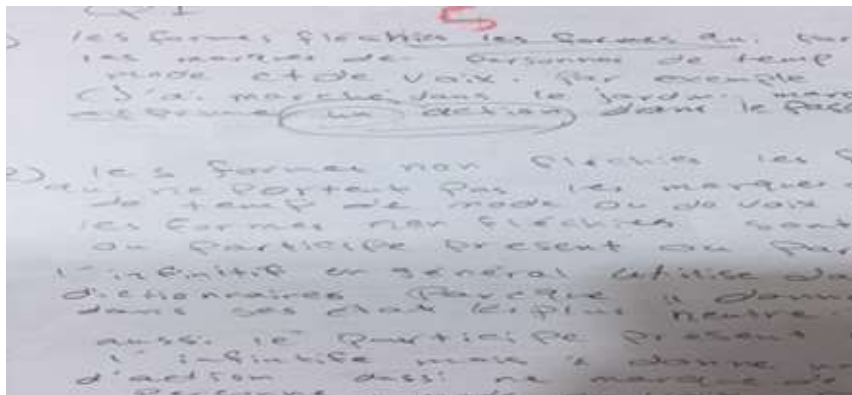 5
les formes fléchies les formes qui
les marques de personnes de temp
mode et de voix. Par exemple
(J'ai marché dans le jardin.
exprime un action dans le
les formes non fléchies les
qui ne portent pas les marques
de temp de mode ou de voix
les formes non fléchies sont
au participe present ou
l'infinitif en général utilise
dictionnaires parceque il donne
dans ses état le plus neutre.
aussi le participe present
l'infinitife mais il donne
d'action aussi ne marque de
personne